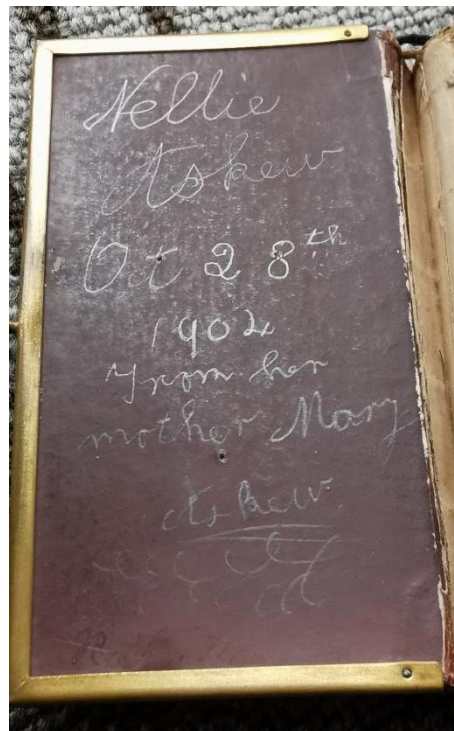 Nellie
Askew
Oct 28th
1902
From her
mother Mary
Askew